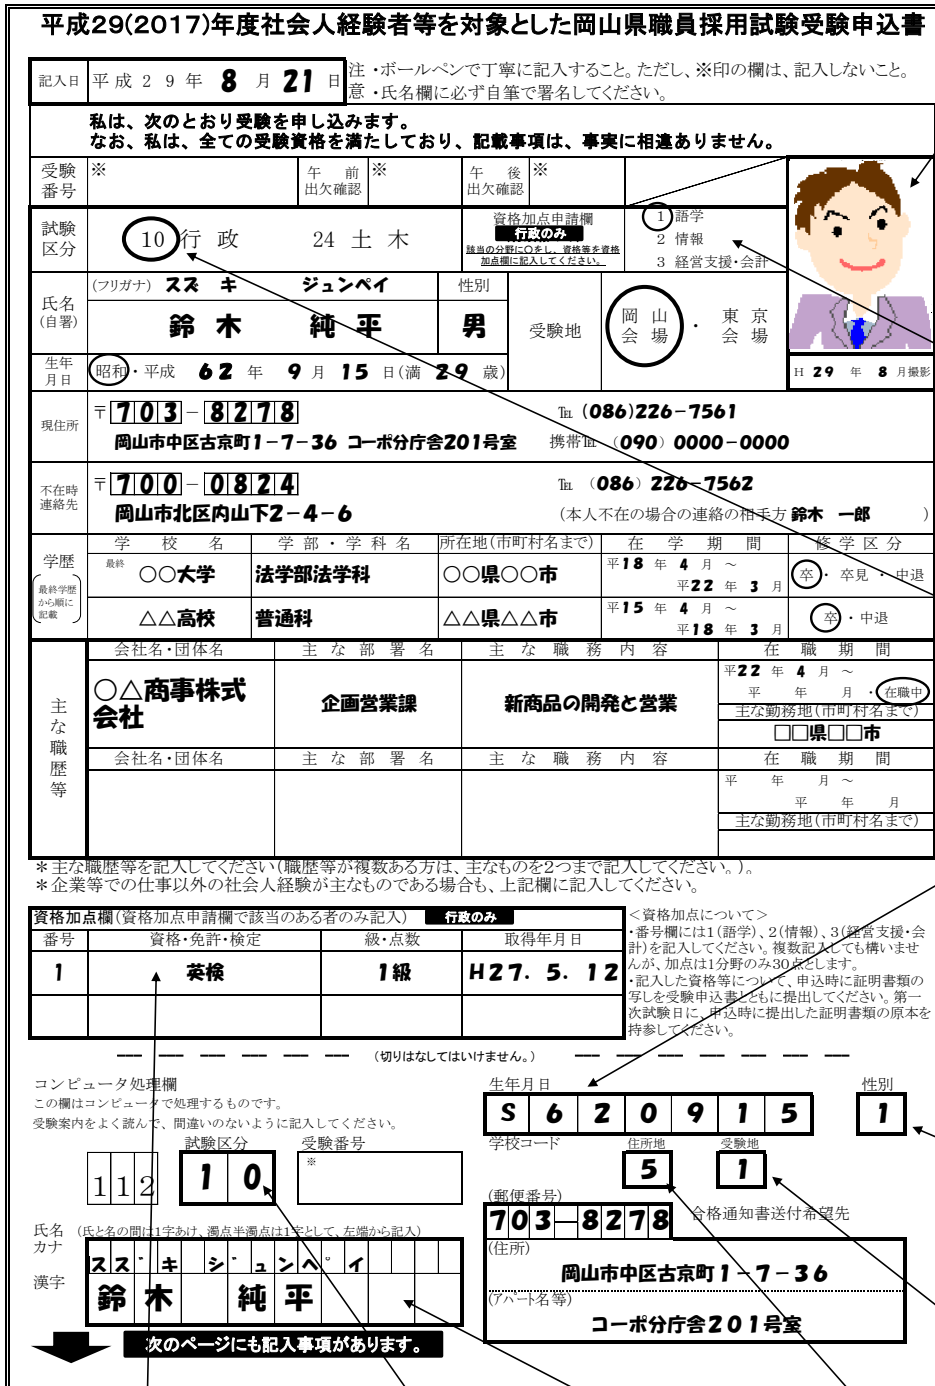 平成29(2017)年度社会人経験者等を対象とした岡山県職員採用試験受験申込書
記入日 平成29年 8 月 21 日
注意 ・ボールペンで丁寧に記入すること。ただし、※印の欄は、記入しないこと。
・氏名欄に必ず自筆で署名してください。
私は、次のとおり受験を申し込みます。
なお、私は、全ての受験資格を満たしており、記載事項は、事実に相違ありません。
受験番号 ※ 午前出欠確認 ※ 午後出欠確認 ※
試験区分 10 行政 24 土木
資格加点申請欄
行政のみ
該当の分野に○をし、資格等を資格加点欄に記入してください。
1 語学
2 情報
3 経営支援・会計
氏名(自署) (フリガナ) スズキ ジュンペイ 性別
鈴木 純平 男
受験地 岡山会場 ・ 東京会場
生年月日 昭和・平成 62 年 9 月 15 日(満 29 歳)
H 29 年 8 月撮影
現住所 〒703-8278 ℡ (086)226-7561
岡山市中区古京町1-7-36 コーポ分庁舎201号室 携帯℡ (090) 0000-0000
不在時連絡先 〒700-0824 ℡ (086) 226-7562
岡山市北区内山下2-4-6 (本人不在の場合の連絡の相手方 鈴木 一郎 )
学歴 最終学歴から順に記載
学校名 学部・学科名 所在地(市町村名まで) 在学期間 修学区分
最終 ○○大学 法学部法学科 ○○県○○市 平18 年 4 月 ~ 平22 年 3 月 卒・ 卒見 ・ 中退
△△高校 普通科 △△県△△市 平15 年 4 月 ~ 平18 年 3 月 卒 ・ 中退
主な職歴等
会社名・団体名 主な部署名 主な職務内容 在職期間
○△商事株式会社 企画営業課 新商品の開発と営業 平22 年 4 月 ~
平 年 月 ・在職中
主な勤務地(市町村名まで)
□□県□□市
会社名・団体名 主な部署名 主な職務内容 在職期間
平 年 月 ~
平 年 月
主な勤務地(市町村名まで)
*主な職歴等を記入してください(職歴等が複数ある方は、主なものを2つまで記入してください。)。
*企業等での仕事以外の社会人経験が主なものである場合も、上記欄に記入してください。
資格加点欄(資格加点申請欄で該当のある者のみ記入) 行政のみ
番号 資格・免許・検定 級・点数 取得年月日
1 英検 1級 H27. 5. 12
<資格加点について>
・番号欄には1(語学)、2(情報)、3(経営支援・会
計)を記入してください。複数記入しても構いませ
んが、加点は1分野のみ30点とします。
・記入した資格等について、申込時に証明書類の
写しを受験申込書とともに提出してください。第一
次試験日に、申込時に提出した証明書類の原本を
持参してください。
(切りはなしてはいけません。)
コンピュータ処理欄
この欄はコンピュータで処理するものです。
受験案内をよく読んで、間違いのないように記入してください。
生年月日 性別
S620915 1
試験区分 受験番号
112 10 ※
学校コード 住所地 受験地
5 1
(郵便番号)
703-8278 合格通知書送付希望先
氏名 (氏と名の間は1字あけ、濁点半濁点は1字として、左端から記入)
カナ スス゛キ シ゛ュンヘ゜イ
漢字 鈴木 純平
(住所)
岡山市中区古京町1-7-36
(アパート名等)
コーポ分庁舎201号室
次のページにも記入事項があります。